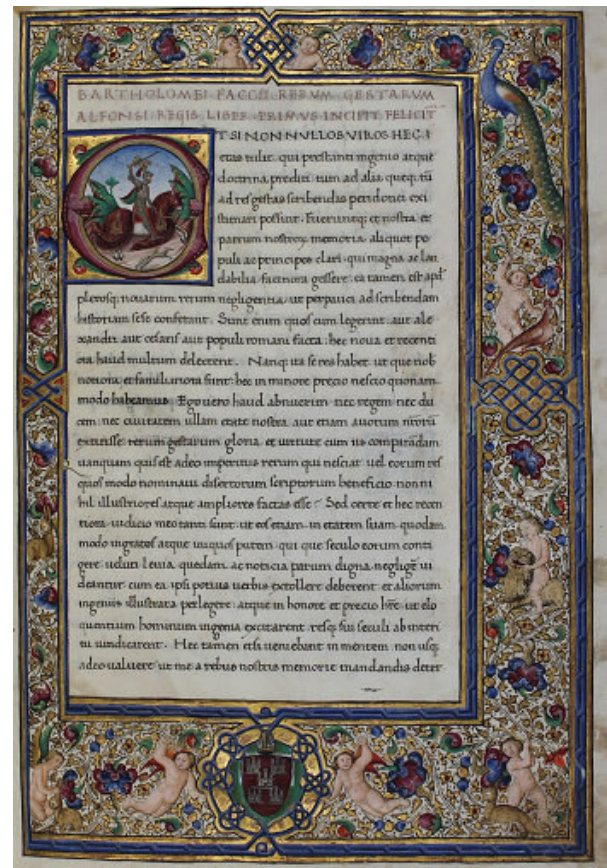 BARTHOLOMEI FACCII RERVM GESTARVM
ALFONSI REGIS LIBER PRIMVS INCIPIT FELICIT
T SI NON NVLLOS VIROS HEC
etas tulit qui prestanti ingenio atque
doctrina prediti tum ad alia queque tū
ad res gestas scribendas peridonei exi
stimari possint. Fueruntq; et nostra et
patrum nostroꝝ memoria aliquot po
puli ac principes clari qui magna ac lau
dabilia facinora gessere. ea tamen est apd
plerosq; nouarum rerum negligentia ut perpauci ad scribendam
historiam sese conferant. Sunt enim quos cum legerint aut ale
xandri aut cesaris aut populi romani facta hec noua et recenti
ora haud multum delectent. Nanq; ita se res habet ut que nob
notiora et familiariora sunt hec in minore precio nescio quonam
modo habeamus. Ego uero haud abnuerim nec regem nec du
cem nec ciuitatem ullam etate nostra aut etiam auorum nr̄orū
extitisse rerum gestarum gloria et uirtute cum iis comparādam
uanquam quis est adeo imperitus rerum qui nesciat uel eorum res
quos modo nominaui disertorum scriptorum beneficio non ni
hil illustriores atque ampliores factas esse. Sed certe et hec recen
tiora iudicio meo tanti sunt ut eos etiam in etatem suam quodam
modo ingratos atque iniquos putem qui que seculo eorum conti
gere ueluti leuia quedam ac noticia parum digna negligēt ui
deantur cum ea ipsi potius uerbis extollere deberent et aliorum
ingeniis illustrata perlegere atque in honore et precio hr̄e ut elo
quentium hominum ingenia excitarent resq; sui seculi ab interi
tu uindicarent. Hec tamen etsi ueniebant in mentem non usq;
adeo ualuere ut me a rebus nostris memorie mandandis deter